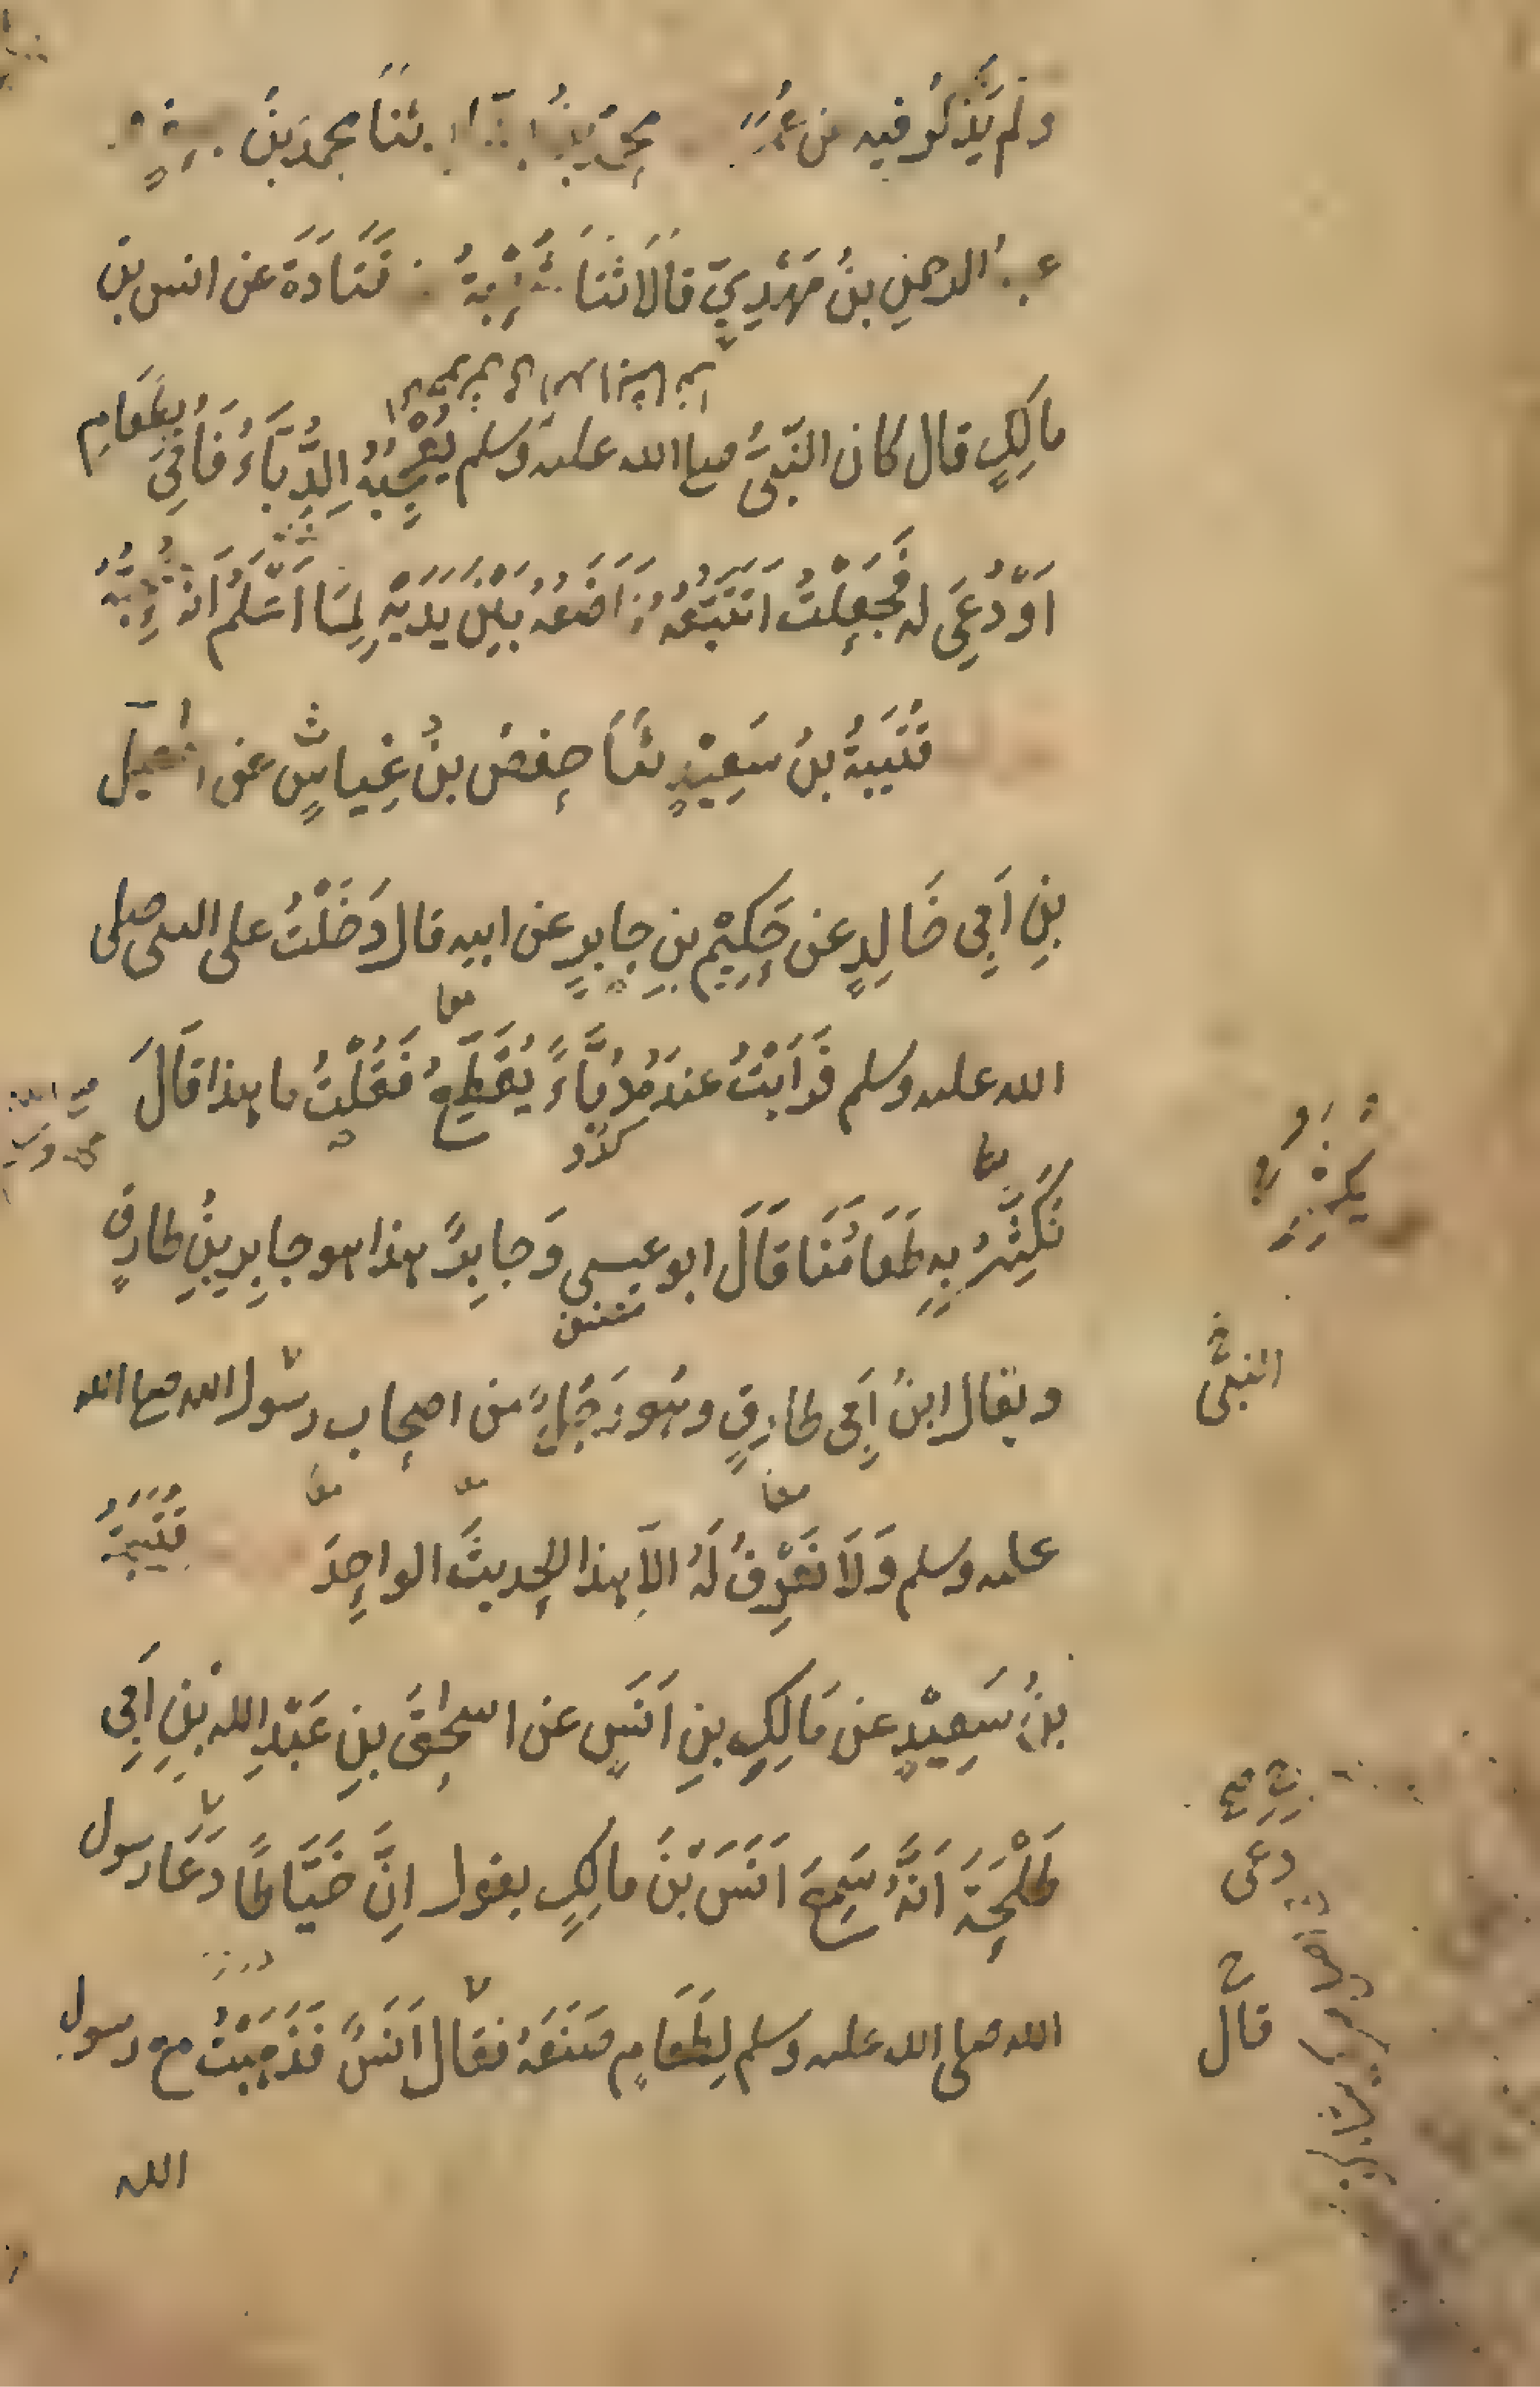 ولم يَذْكُر فيه عن عُمَرَ محمدُ بنُ ثَنَا محمدُ بنُ
عبدُ الرحمنِ بنُ مَهْدِيّ قالَا ثَنَا شُعْبَةُ عن قَتَادَةَ عن انس بن
مالِكٍ قال كان النَّبِيُّ صلى الله عليه وسلم يُعْجِبُهُ الدُّبَّاءُ فَاُتِيَ بِطَعَامٍ
اَوْ دُعِيَ له فَجَعَلْتُ اَتَتَبَّعُهُ فَاَضَعُهُ بَيْنَ يَدَيْهِ لِمَا اَعْلَمُ اَنَّهُ يُحِبُّهُ
قُتَيْبَةُ بنُ سَعِيْدٍ ثَنَا حفصُ بنُ غِياثٍ عن اسمعيل
بنِ اَبِي خَالِدٍ عن حَكِيْمِ بنِ جابِرٍ عن ابيه قال دَخَلْتُ على النبى صلى
الله عليه وسلم فَرَاَيْتُ عندَه دُبَّاءً يُقَطَّعُ فَقُلْتُ ما هذا قَالَ
نُكَثِّرُ بِهِ طَعَامَنَا قَالَ ابو عيسى وَجابِرٌ هذا هو جابِر بنُ طارِقٍ
ويقال ابنُ اَبِي طارِقٍ وهُو رَجُلٌ من اصحاب رسول الله صلى الله
النبيِّ
عليه وسلم وَلَا نَعْرِفُ لَهُ الَّا هذا الحديثَ الواحِدَ قُتَيْبَةُ
بنُ سَعِيْدٍ عن مَالِكِ بنِ اَنَسٍ عن اسحٰقَ بنِ عَبْدِ اللهِ بْنِ اَبِي
طَلْحَةَ اَنَّهُ سَمِعَ اَنَسَ بْنَ مالِكٍ يقول اِنَّ خَيَّاطًا دَعَا رسول
دعى
الله صلى الله عليه وسلم لِطَعَامٍ صَنَعَهُ فقال اَنَسٌ فَذَهَبْتُ مع رسول
قال
الله